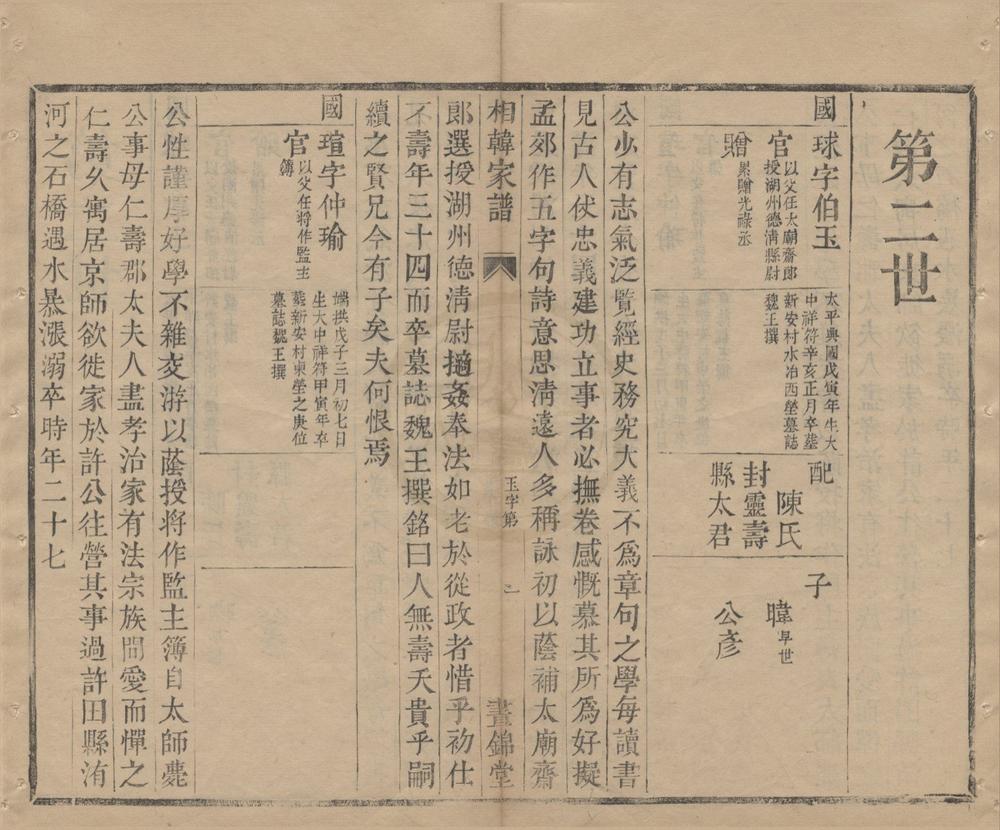 第二世
國球字伯玉
官
以父任太廟齋郎
授湖州德淸縣尉
贈
累贈光祿丞
太平興國戊寅年生大
中祥符辛亥正月卒塟
新安村水冶西塋墓誌
魏王撰
配
陳氏
封靈壽
縣太君
子
暐早世
公彥
公少有志氣泛覽經史務究大義不爲章句之學每讀書
見古人伏忠義建功立事者必撫卷感慨慕其所爲好擬
孟郊作五字句詩意思淸遠人多稱詠初以蔭補太廟齋
相韓家譜
玉字第
二
晝錦堂
郞選授湖州德淸尉擿姦奉法如老於從政者惜乎初仕
不壽年三十四而卒墓誌魏王撰銘曰人無壽夭貴乎嗣
續之賢兄今有子矣夫何恨焉
國瑄字仲瑜
官
以父任將作監主
簿
端拱戊子三月初七日
生大中祥符甲寅年卒
塟新安村東塋之庚位
墓誌魏王撰
公性謹厚好學不雜交游以蔭授將作監主簿自太師薨
公事母仁壽郡太夫人盡孝治家有法宗族間愛而憚之
仁壽久寓居京師欲徙家於許公往營其事過許田縣洧
河之石橋遇水暴漲溺卒時年二十七